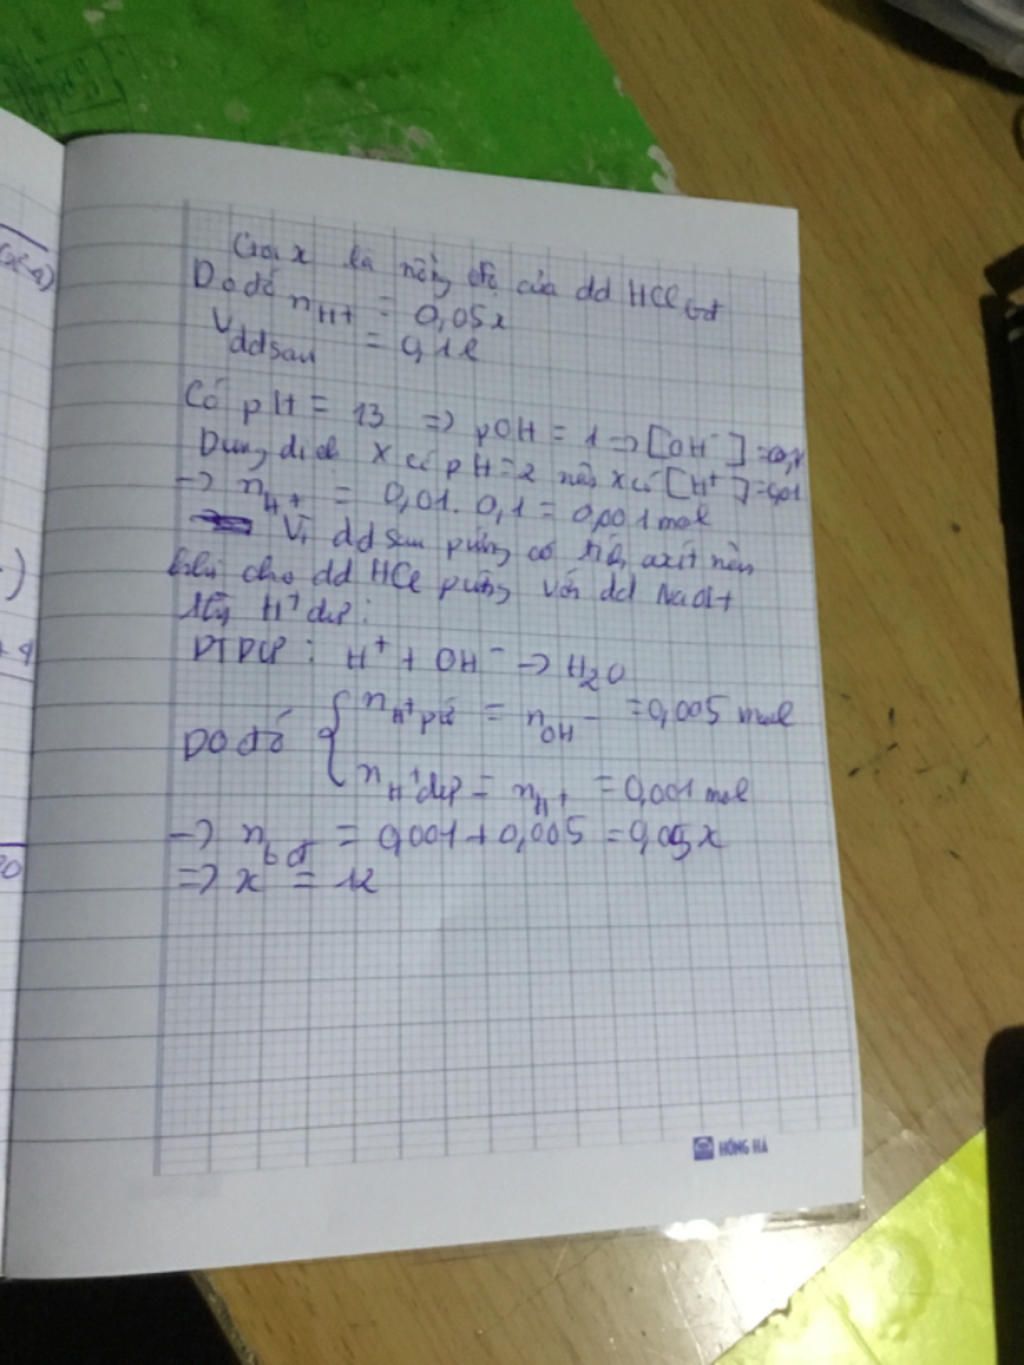 Gọi x là nồng độ của dd HCl bđ
Do đó nH+ = 0,05x
Vddsau = 0,1l
Có pH = 13 => pOH = 1 -> [OH-] = 0,1
Dung dịch X có pH = 2 nên X có [H+] = 0,01
-> nH+ = 0,01. 0,1 = 0,001 mol
Vì dd sau pứng có axit nên
khi cho dd HCl pứng với dd NaOH
H+ dư :
PTPƯ : H+ + OH- -> H2O
Do đó { nH+pứ = nOH- = 0,005 mol
nH+dư = nH+ = 0,001 mol
-> nbđ = 0,001 + 0,005 = 0,05x
=> x = 12
HỒNG HÀ
(x-a)
)